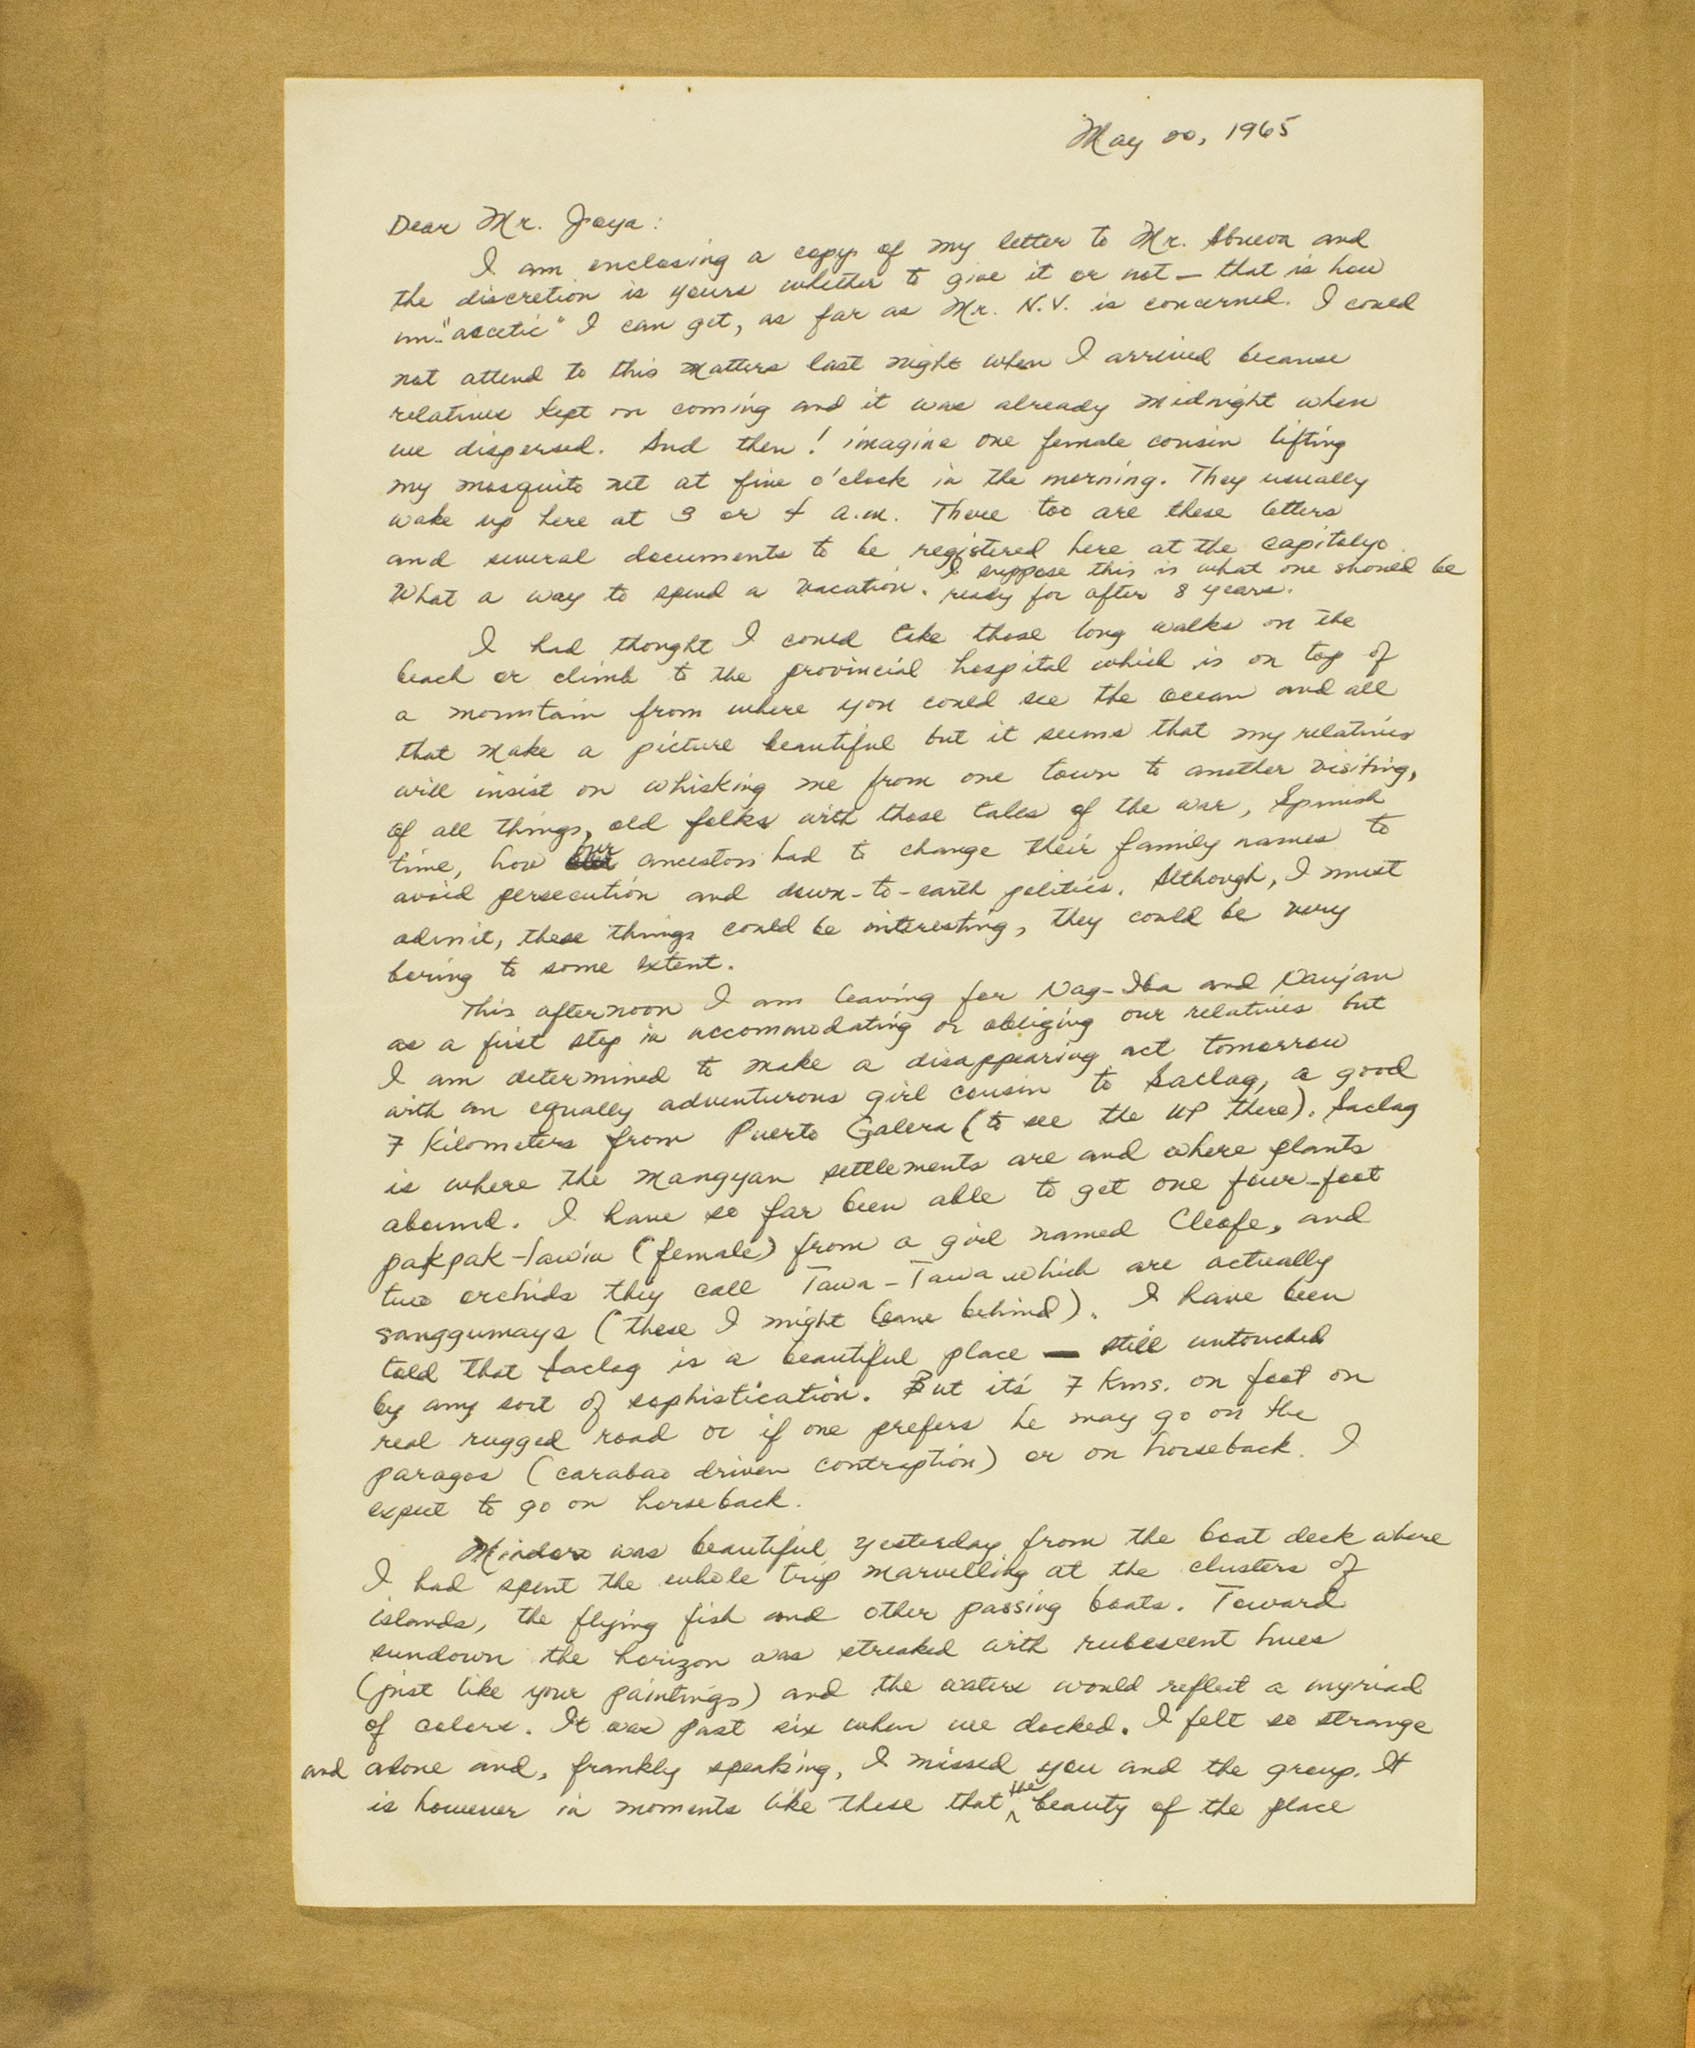 May 20, 1965
Dear Mr. Joya:
I am enclosing a copy of my letter to Mr. Abueva and
the discretion is yours whether to give it or not — that is how
un-"ascetic" I can get, as far as Mr. N.V. is concerned. I could
not attend to this matters last night when I arrived because
relatives kept on coming and it was already midnight when
we dispersed. And then! imagine one female cousin lifting
my mosquito net at five o'clock in the morning. They usually
wake up here at 3 or 4 a.m. There too are these letters
and several documents to be registered here at the capitolyo.
What a way to spend a vacation. I suppose this is what one should be
ready for after 8 years.
I had thought I could take those long walks on the
beach or climb to the provincial hospital which is on top of
a mountain from where you could see the ocean and all
that make a picture beautiful but it seems that my relatives
will insist on whisking me from one town to another visiting,
of all things, old folks with those tales of the war, Spanish
time, how our ancestors had to change their family names to
avoid persecution and down-to-earth politics. Although, I must
admit, these things could be interesting, they could be very
boring to some extent.
This afternoon I am leaving for Nag-Iba and Naujan
as a first step in accommodating or obliging our relatives but
I am determined to make a disappearing act tomorrow
with an equally adventurous girl cousin to Saclag, a good
7 kilometers from Puerto Galera (to see the UP there). Saclag
is where the Mangyan settlements are and where plants
abound. I have so far been able to get one four-foot
pakpak-lawin (female) from a girl named Cleofe, and
two orchids they call Tawa-Tawa which are actually
sanggumays (these I might leave behind). I have been
told that Saclag is a beautiful place — still untouched
by any sort of sophistication. But it's 7 kms. on foot on
real rugged road or if one prefers he may go on the
paragos (carabao driven contraption) or on horseback. I
expect to go on horseback.
Mindoro was beautiful yesterday from the boat deck where
I had spent the whole trip marvelling at the clusters of
islands, the flying fish and other passing boats. Toward
sundown the horizon was streaked with rubescent hues
(just like your paintings) and the waters would reflect a myriad
of colors. It was past six when we docked. I felt so strange
and alone and, frankly speaking, I missed you and the group. It
is however in moments like these that the beauty of the place